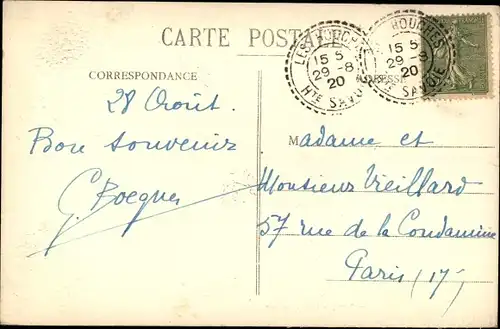 CARTE POSTALE
LES HOUCHES
15 5
29 - 8
20
HTE SAVOIE
HOUCHES
15 5
29 - 8
20
SAVOIE
CORRESPONDANCE
ADRESSE
28 Août.
Bon souvenir
G. Boegner
Madame et
Monsieur Vieillard
57 rue de la Condamine
Paris (17)